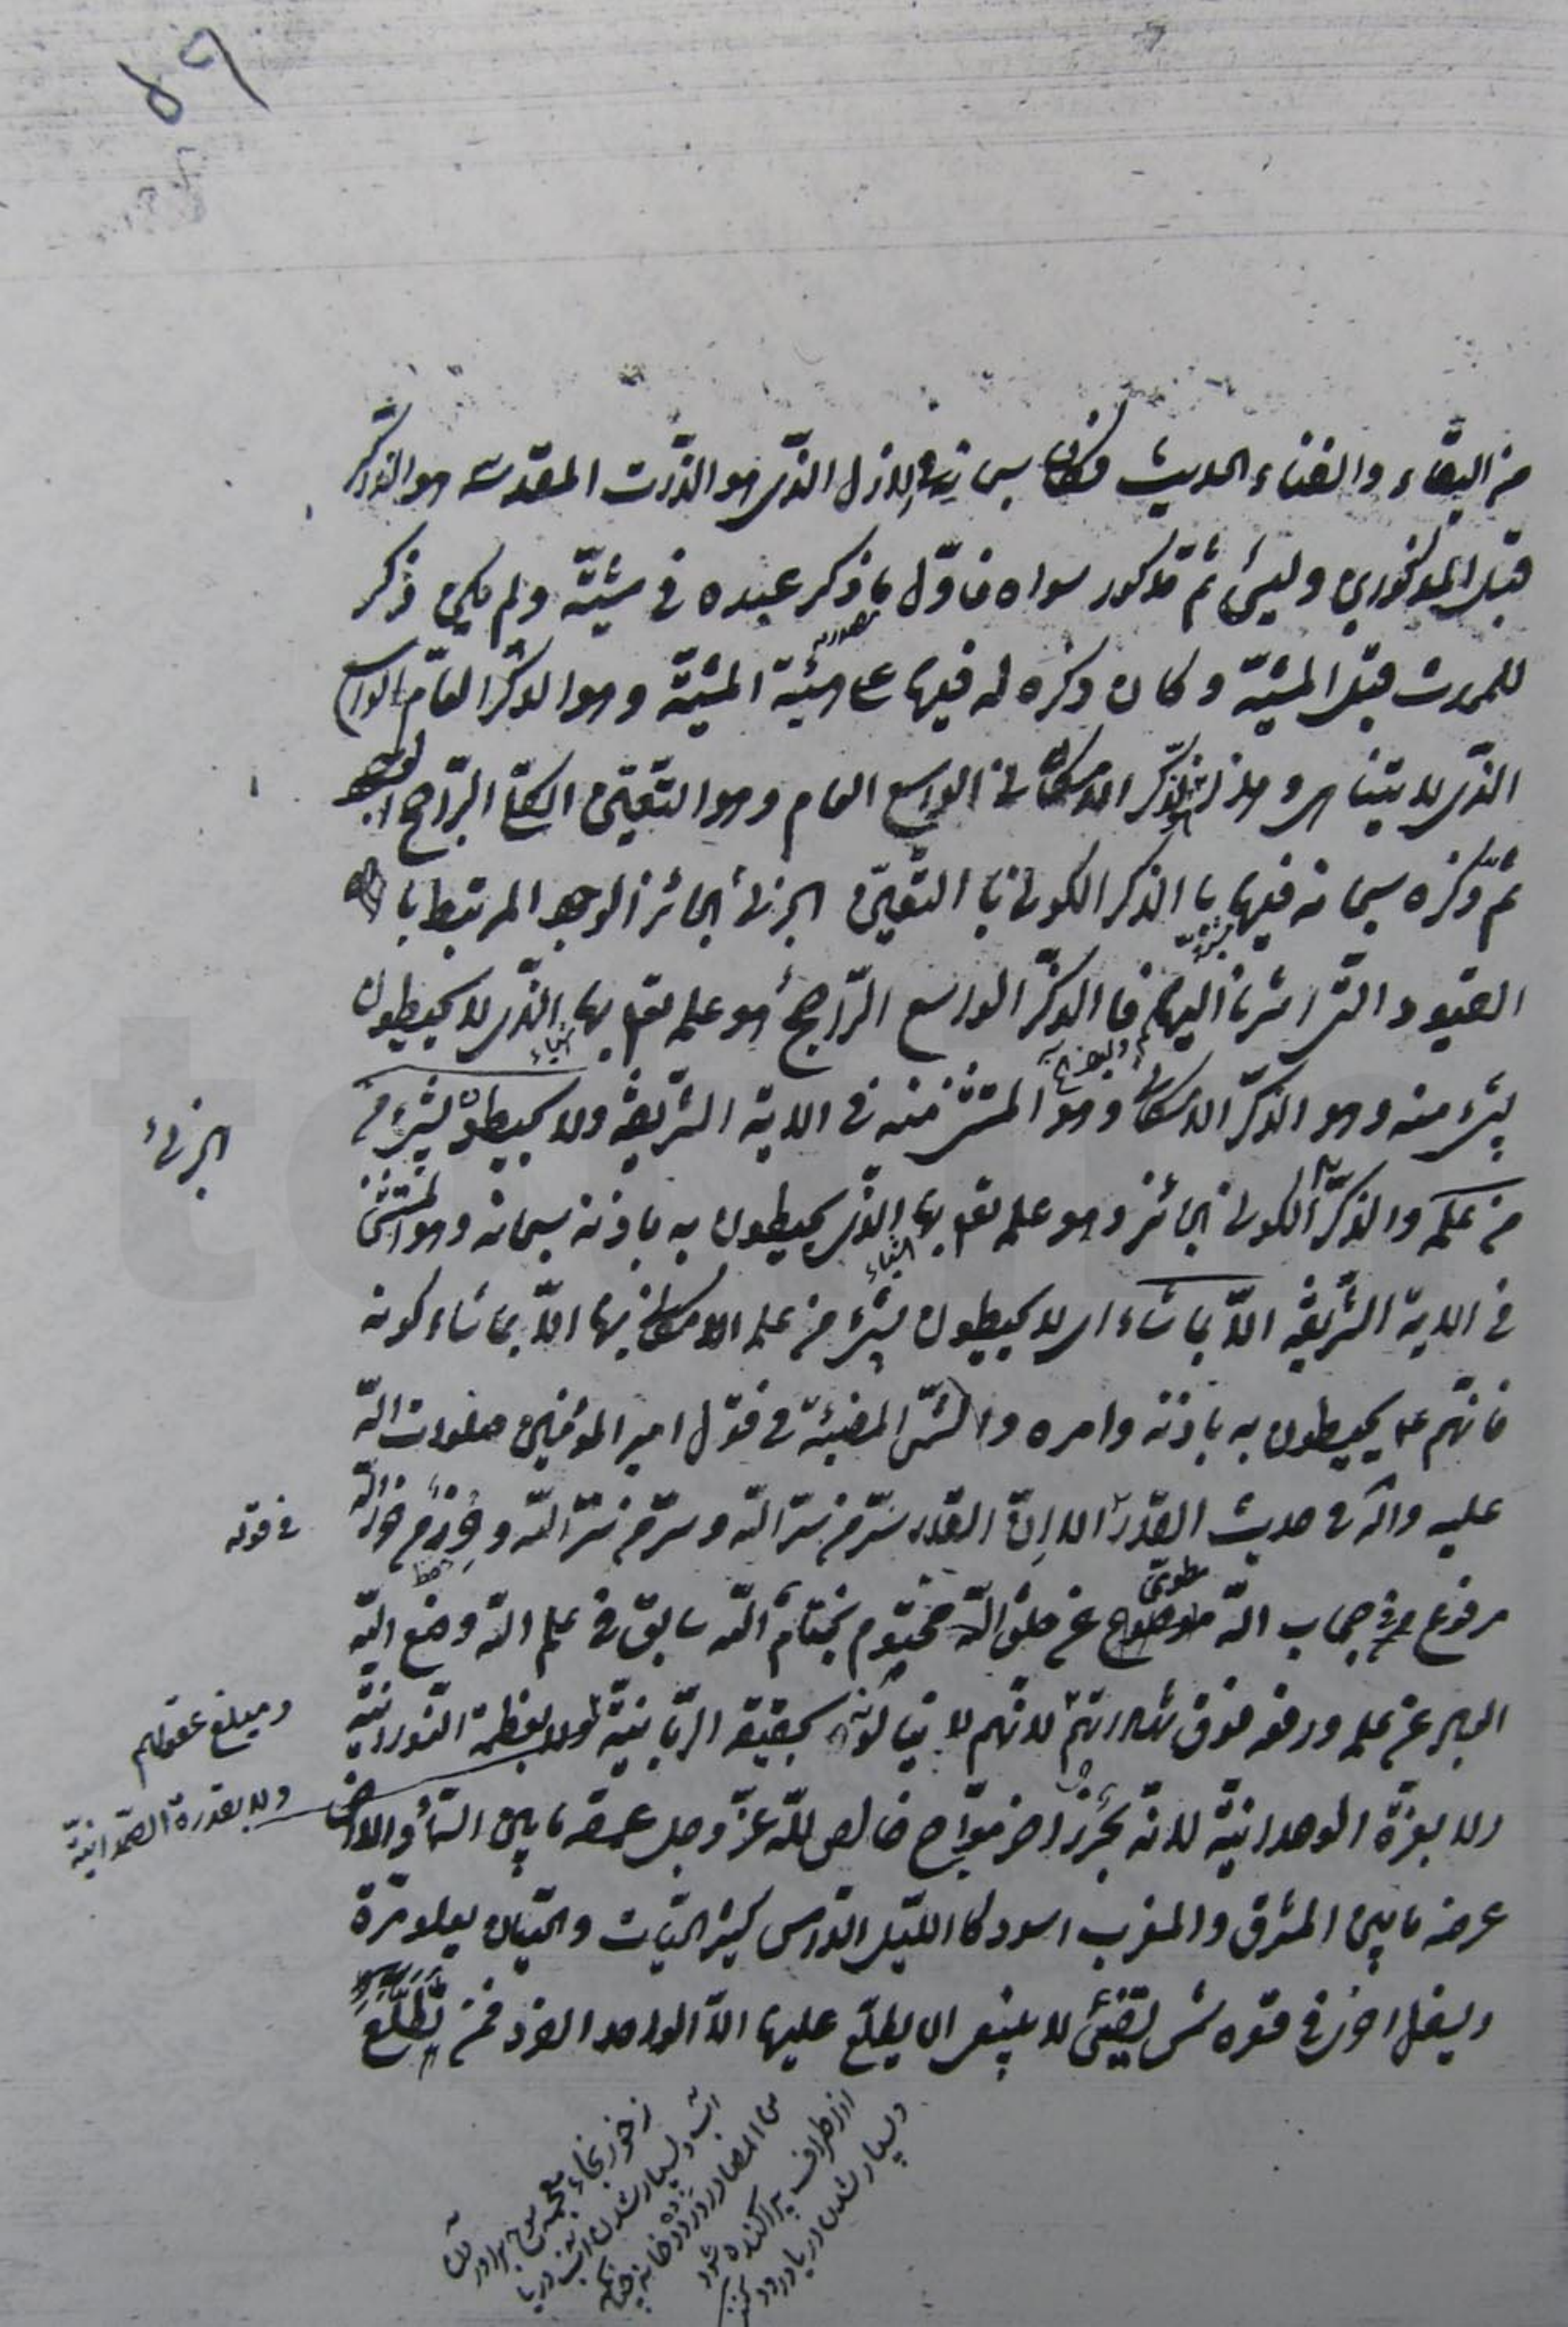 ٥٩
من البقاء والفناء الحديث فكان سبحانه في الازل الذى هو الذات المقدسة هو الذاكر
قبل المذكورين وليس ثم مذكور سواه فاول ما ذكر عبده فى مشيته ولم يكن ذكر
للحدث قبل المشية وكان ذكره له فيها على هيئة المشية وهو الذكر العام الواسع
الذى لا يتناهى وهذا الذكر الامكانى الواسع العام وهو التعين الكلى الراجح الوجود
ثم ذكره سبحانه فيها با الذكر الكونى با التعين الجزئى الجائز الوجود المرتبط با
القيود التى اشرنا اليها فا الذكر الواسع الراجح هو علمه تعالى بها الذى لا يحيطون
بشىء منه وهو الذكر الامكانى وهو المستثنى منه فى الاية الشريفة ولا يحيطون بشىء من
من علمه والذكر الكونى الجائز وهو علمه تعالى بها الذى يحيطون به باذنه سبحانه وهو المستثنى
الجزئى
فى الاية الشريفة الا بما شاء اى لا يحيطون بشىء من علمه الامكانى بها الا بما شاء كونه
فانهم ع يحيطون به باذنه وامره والشمس المضيئة فى قول امير المؤمنين صلوات الله
عليه واله فى حديث القدر الا ان القدر سر من سر الله وستر من ستر الله وحرز من حرز الله
فى قوله
مرفوع فى حجاب الله مطوى عن خلق الله مختوم بخاتم الله سابق فى علم الله وضع الله
العباد عن علمه ورفعه فوق شهاداتهم لانهم لا ينالونه بحقيقة الربانية ولا بعظمة النورانية
ومبلغ عقولهم
ولا بقدرة الصمدانية
ولا بعزة الوحدانية لانه بحر زاخر مواج خالص لله عز وجل عمقه ما بين السماء والارض
عرضه ما بين المشرق والمغرب اسود كا الليل الدامس كثير الحيات والحيتان يعلو مرة
ويسفل اخرى فى قعره شمس تضىء لا ينبغى ان يطلع عليها الا الواحد الفرد فمن تطلع